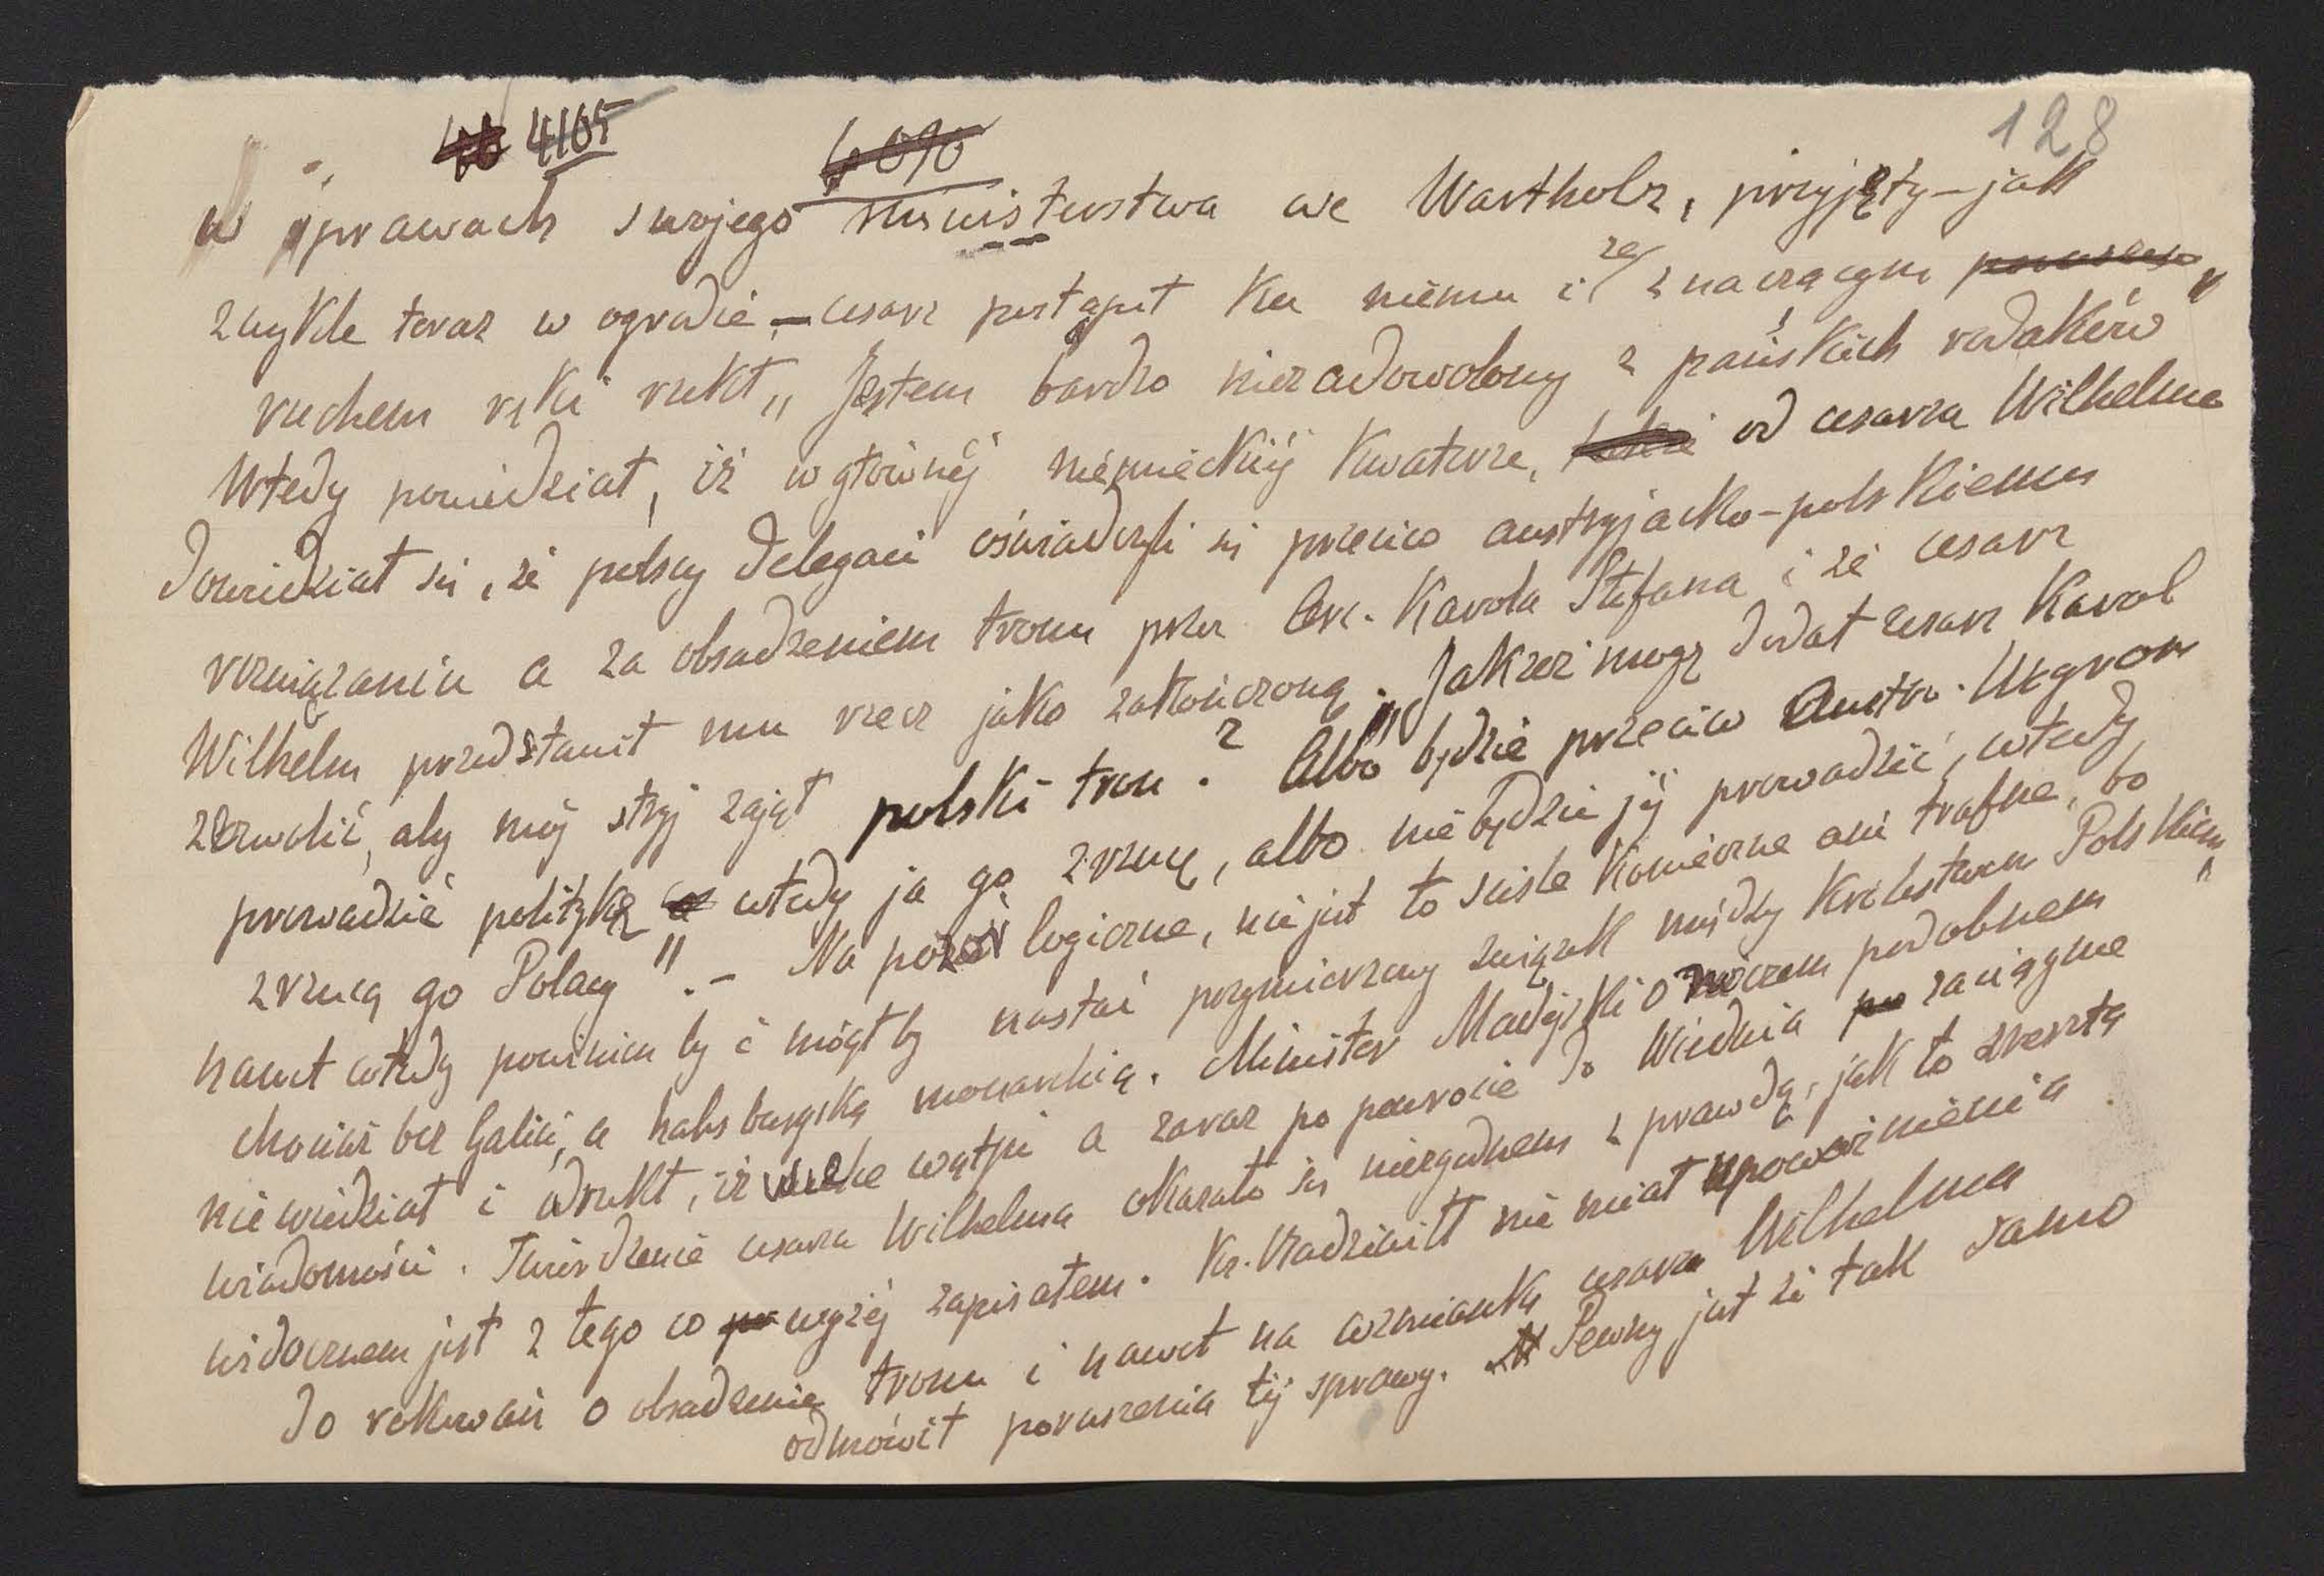 4105 4090 128
w sprawach swojego ministerstwa we Wartholz, przyjęty – jak
zwykle teraz w ogrodzie – cesarz postąpił ku niemu i ze znaczącym
ruchem ręki rzekł „Jestem bardzo niezadowolony z pańskich rodaków"
Wtedy powiedział, iż w głównéj niemieckiéj kwaterze, od cesarza Wilhelma
dowiedział się, że polscy delegaci oświadczyli się przeciw austryjacko-polskiemu
rozwiązaniu a za obsadzeniem tronu przez Arc. Karola Stefana i że cesarz
Wilhelm przedstawił mu rzecz jako zakończoną. „Jakżeż mogę dodał cesarz Karol
zezwolić, aby mój stryj zajął polski tron? Albo będzie przeciw Austro-Węgrom
prowadzić politykę wtedy ja go zrzucę, albo nie będzie jéj prowadzić, wtedy
zrzucą go Polacy". – Na pozór logiczne, nie jest to ściśle konieczne ani trafne, bo
nawet wtedy powinien by i mógł by nastać przymierzony związek między Królestwem Polskiem
chociaż bez Galicji, a habsburgską monarchią. Minister Madejski o niczem podobnem
nie wiedział i odrzekł, iż wielce wątpi a zaraz po powrocie do Wiednia zaciągnie
wiadomości. Twierdzenie cesarza Wilhelma okazało się niezgodnem z prawdą, jak to zresztą
widocznem jest z tego co wyżéj zapisałem. Ks. Radziwiłł nie miał upoważnienia
do rokowań o obsadzenie tronu i nawet na wzmiankę cesarza Wilhelma
odmówił poruszenia téj sprawy. Pewny jest że tak samo